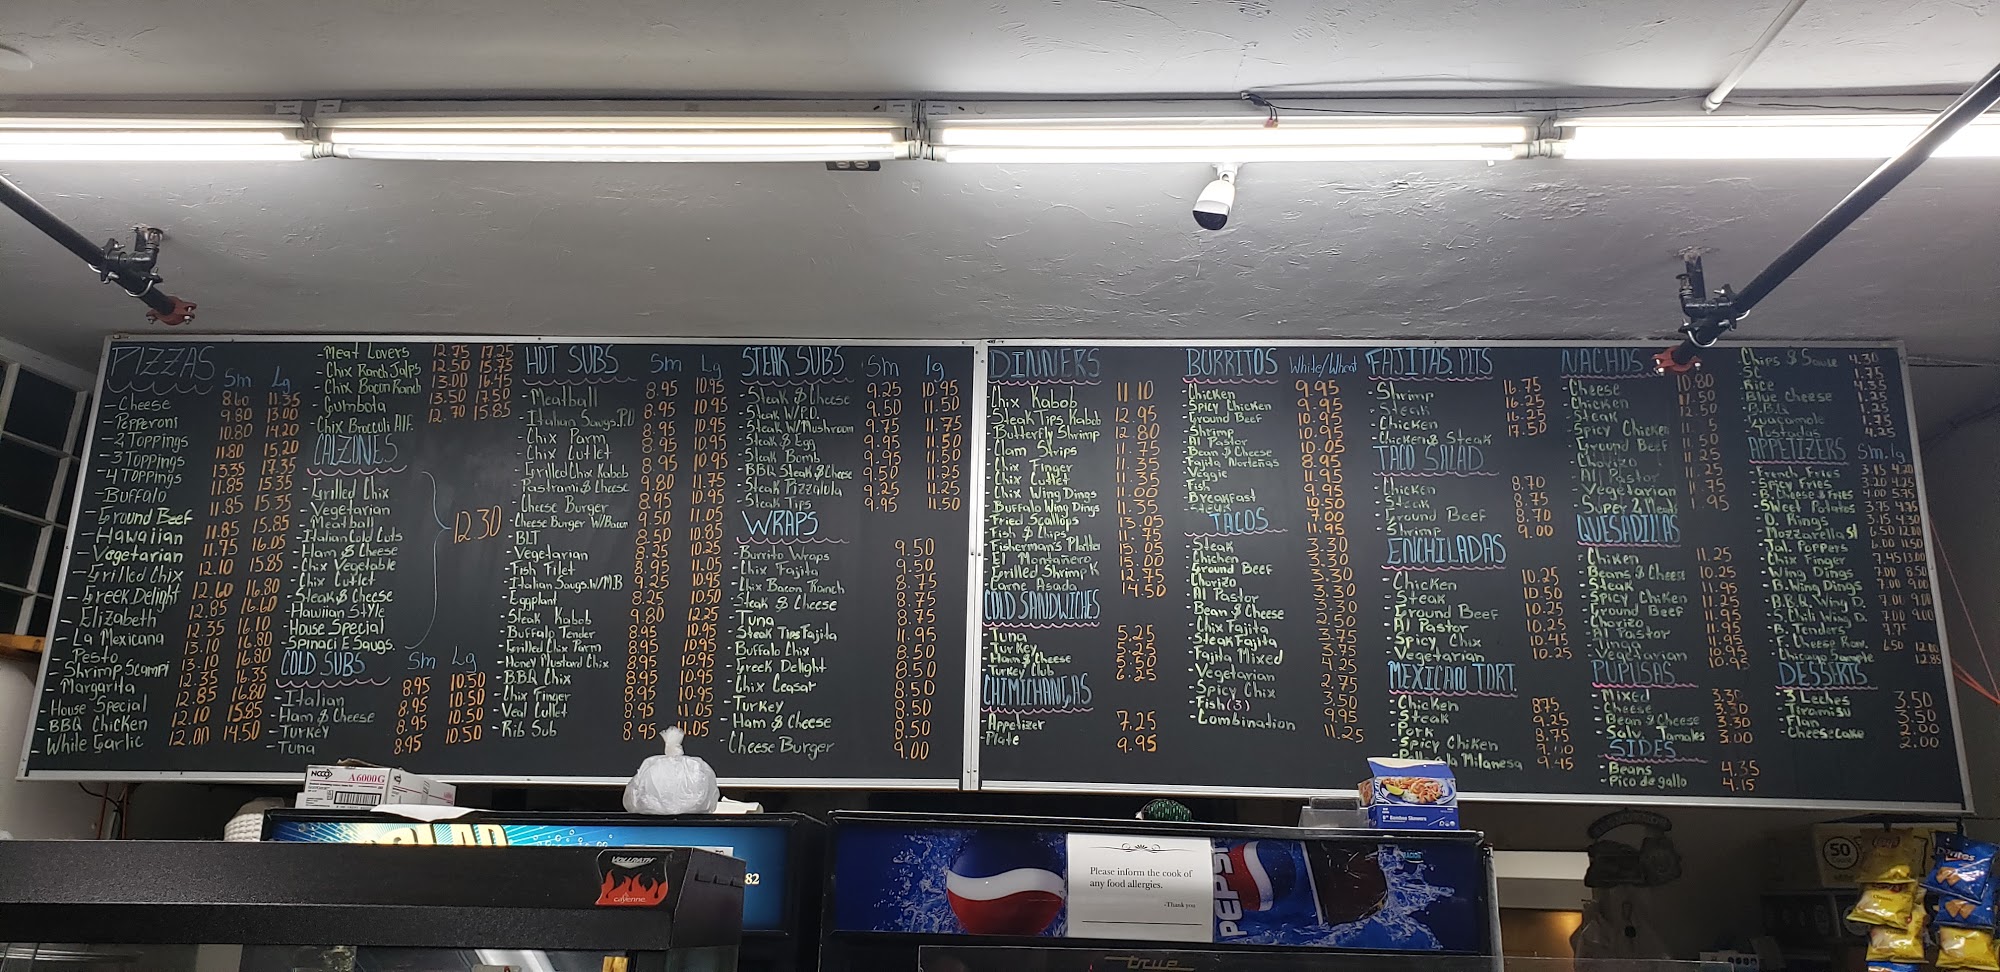 PIZZAS
Sm Lg
- Cheese 8.60 11.35
- Pepperoni 9.80 13.00
- 2 Toppings 10.80 14.20
- 3 Toppings 11.80 15.20
- 4 Toppings 13.35 17.35
- Buffalo 11.85 15.35
- Ground Beef 11.85 15.35
- Hawaiian 11.85 15.85
- Vegetarian 11.75 16.05
- Grilled Chix 12.10 15.85
- Greek Delight 12.60 16.80
- Elizabeth 12.85 16.60
- La Mexicana 12.35 16.10
- Pesto 13.10 16.80
- Shrimp Scampi 13.10 16.80
- Margarita 12.35 16.35
- House Special 12.85 16.80
- BBQ Chicken 12.10 15.85
- White Garlic 12.00 14.50
- Meat Lovers 12.75 17.25
- Chix Ranch Jalps 12.50 15.75
- Chix Bacon Ranch 13.00 16.45
- Gumbota 13.50 17.50
- Chix Broccoli Alf. 12.70 15.85
CALZONES
- Grilled Chix
- Vegetarian
- Meatball
- Italian Cold Cuts
- Ham & Cheese
- Chix Vegetable
- Chix Cutlet
- Steak & Cheese
- Hawiian Style
- House Special
- Spinaci E Saugs.
12.30
COLD SUBS Sm Lg
- Italian 8.95 10.50
- Ham & Cheese 8.95 10.50
- Turkey 8.95 10.50
- Tuna 8.95 10.50
HOT SUBS Sm Lg
- Meatball 8.95 10.95
- Italian Saugs. P.O 8.95 10.95
- Chix Parm 8.95 10.95
- Chix Cutlet 8.95 10.95
- Grilled Chix Kabob 8.95 10.95
- Pastrami & Cheese 9.80 11.75
- Cheese Burger 8.95 10.95
- Cheese Burger W/Bacon 9.50 11.05
- BLT 8.50 10.85
- Vegetarian 8.25 10.25
- Fish Filet 8.95 11.05
- Italian Saugs. W/M.B 9.25 10.95
- Eggplant 8.25 10.50
- Steak Kabob 9.80 12.25
- Buffalo Tender 8.95 10.95
- Grilled Chix Parm 8.95 10.95
- Honey Mustard Chix 8.95 10.95
- BBQ Chix 8.95 10.95
- Chix Finger 8.95 10.95
- Veal Cutlet 8.95 11.05
- Rib Sub 8.95 11.05
STEAK SUBS Sm lg
- Steak & Cheese 9.25 10.95
- Steak W/P.O. 9.50 11.50
- Steak W/Mushroom 9.75 11.75
- Steak & Egg 9.95 11.50
- Steak Bomb 9.95 11.95
- BBQ Steak & Cheese 9.50 11.25
- Steak Pizzaiula 9.25 11.25
- Steak Tips 9.95 11.50
WRAPS
- Burrito Wraps 9.50
- Chix Fajita 9.50
- Chix Bacon Ranch 8.75
- Steak & Cheese 8.75
- Tuna 8.75
- Steak Tips Fajita 11.95
- Buffalo Chix 8.50
- Greek Delight 8.50
- Chix Ceasar 8.50
- Turkey 8.50
- Ham & Cheese 8.50
- Cheese Burger 9.00
DINNERS
- Chix Kabob 11.10
- Steak Tips Kabob 12.95
- Butterfly Shrimp 12.80
- Clam Strips 11.75
- Chix Finger 11.35
- Chix Cutlet 11.35
- Chix Wing Dings 11.00
- Buffalo Wing Dings 11.35
- Fried Scallops 13.05
- Fish & Chips 11.75
- Fisherman's Platter 15.05
- El Montañero 15.00
- Grilled Shrimp K 12.75
- Carne Asada 14.50
COLD SANDWICHES
- Tuna 5.25
- Turkey 5.25
- Ham & Cheese 5.50
- Turkey Club 6.25
CHIMICHANGAS
- Appetizer 7.25
- Plate 9.95
BURRITOS White/Wheat
- Chicken 9.95
- Spicy Chicken 9.95
- Ground Beef 10.95
- Shrimp 10.95
- Al Pastor 10.05
- Bean & Cheese 8.95
- Fajita Norteñas 11.95
- Veggie 8.95
- Fish 9.95
- Breakfast 7.00
- Steak 11.95
TACOS
- Steak 3.30
- Chicken 3.30
- Ground Beef 3.30
- Chorizo 3.30
- Al Pastor 3.30
- Bean & Cheese 2.50
- Chix Fajita 3.75
- Steak Fajita 3.75
- Fajita Mixed 4.25
- Vegetarian 2.75
- Spicy Chix 3.50
- Fish (3) 9.95
- Combination 11.25
FAJITAS PLTS
- Shrimp 16.75
- Steak 16.25
- Chicken 16.25
- Chicken & Steak 17.50
TACO SALAD
- Chicken 8.70
- Steak 8.75
- Ground Beef 8.70
- Shrimp 9.00
ENCHILADAS
- Chicken 10.25
- Steak 10.50
- Ground Beef 10.25
- Al Pastor 10.25
- Spicy Chix 10.45
- Vegetarian 10.25
MEXICAN TORT.
- Chicken 8.75
- Steak 9.25
- Pork 8.75
- Spicy Chiken
- la Milanesa 9.45
NACHOS
- Cheese 10.80
- Chicken 11.50
- Steak 12.50
- Spicy Chicken
- Ground Beef
- Chorizo
- Al Pastor
- Vegetarian
- Super 2 Meats
QUESADILLAS
- Chiken 11.25
- Beans & Cheese 10.95
- Steak 11.95
- Spicy Chiken 11.25
- Ground Beef 11.95
- Chorizo
- Al Pastor
- Vegetarian 10.95
PUPUSAS
- Mixed 3.30
- Cheese 3.30
- Bean & Cheese 3.30
- Salv. Tamales 3.00
SIDES
- Beans 4.35
- Pico de gallo 4.15
- Chips & Sause 4.30
- SC 1.75
- Rice 4.35
- Blue Cheese 1.25
- B.B.Q 1.75
- Guacamole
APPETIZERS Sm. lg
- French Fries 3.15 4.20
- Spicy Fries 3.20 4.25
- B. Cheese & Fries 4.00 5.75
- Sweet Potatoes
- O. Rings
- Mozzarella St
- Jal. Poppers
- Chix Finger
- Wing Dings
- B. Wing Dings
- B.B.Q. Wing D.
- S. Chili Wing D.
- B. Tenders
- Chicago Sample 12.85
DESSERTS
- 3 Leches 3.50
- Tiramisu 3.50
- Flan 2.00
- Cheesecake 2.00
NCCO A6000G
VOLLRATH
cayenne
82
Please inform the cook of
any food allergies.
-Thank you
PEPSI
true
50
Doritos